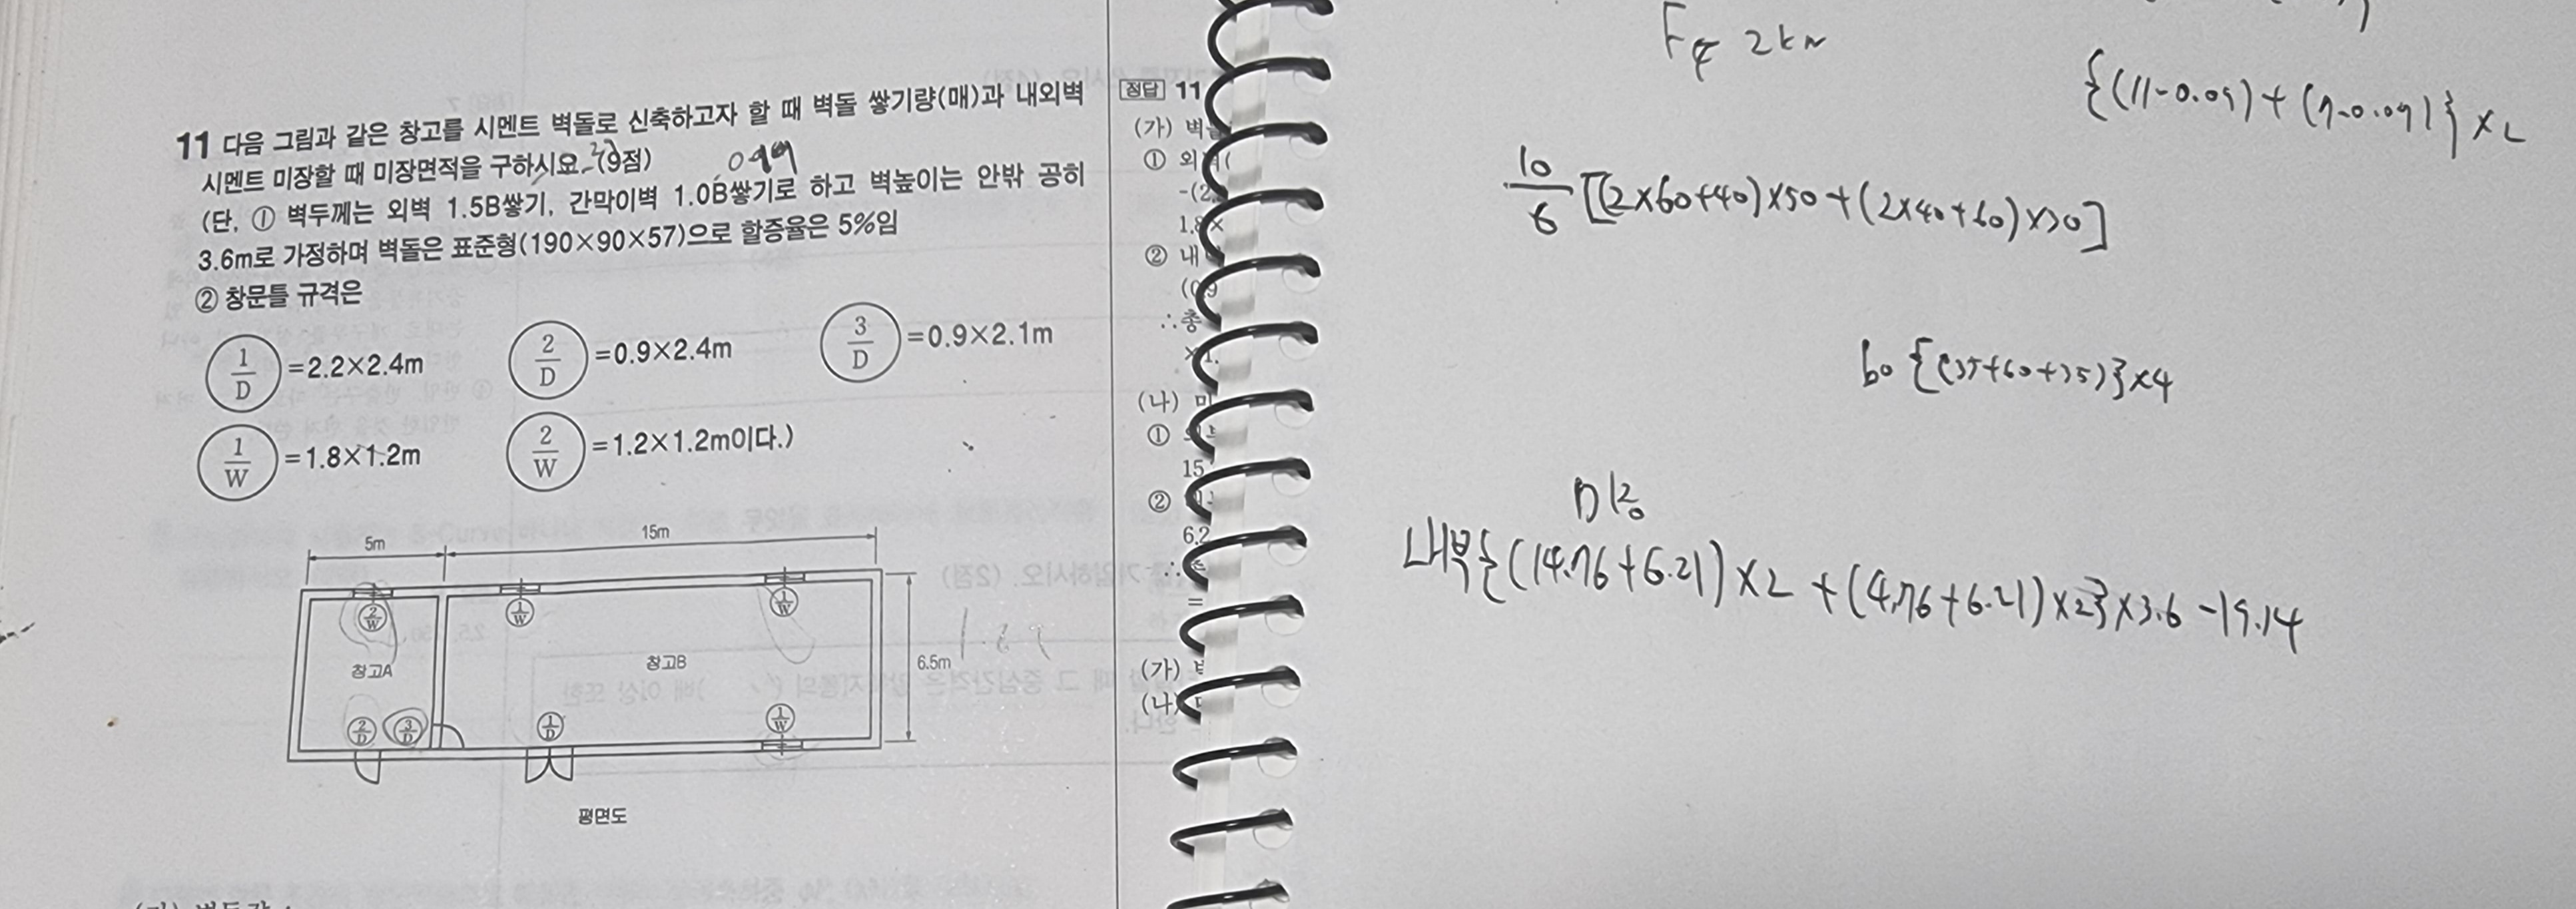 11 다음 그림과 같은 창고를 시멘트 벽돌로 신축하고자 할 때 벽돌 쌓기량(매)과 내외벽
시멘트 미장할 때 미장면적을 구하시요. (9점)
(단, ① 벽두께는 외벽 1.5B쌓기, 간막이벽 1.0B쌓기로 하고 벽높이는 안밖 공히
3.6m로 가정하며 벽돌은 표준형(190×90×57)으로 할증율은 5%임
② 창문틀 규격은
1/D =2.2×2.4m 2/D =0.9×2.4m 3/D =0.9×2.1m
1/W =1.8×1.2m 2/W =1.2×1.2m이다.)
5m 15m
2/W 1/W 1/W
창고A 창고B 6.5m
2/D 3/D 1/D 1/W
평면도
정답 11
(가) 벽
① 외
1.8×
② 내
∴총
(나) 미
①
15
②
6.2
∴
=
(가)
(나)
2kN
{(11-0.09)+(7-0.09)}×2
10/6 [(2×60+40)×50+(2×40+60)×30]
60 {(35+60+35)}×4
내부는 {(14.76+6.21)×2+(4.76+6.21)×2}×3.6-19.14